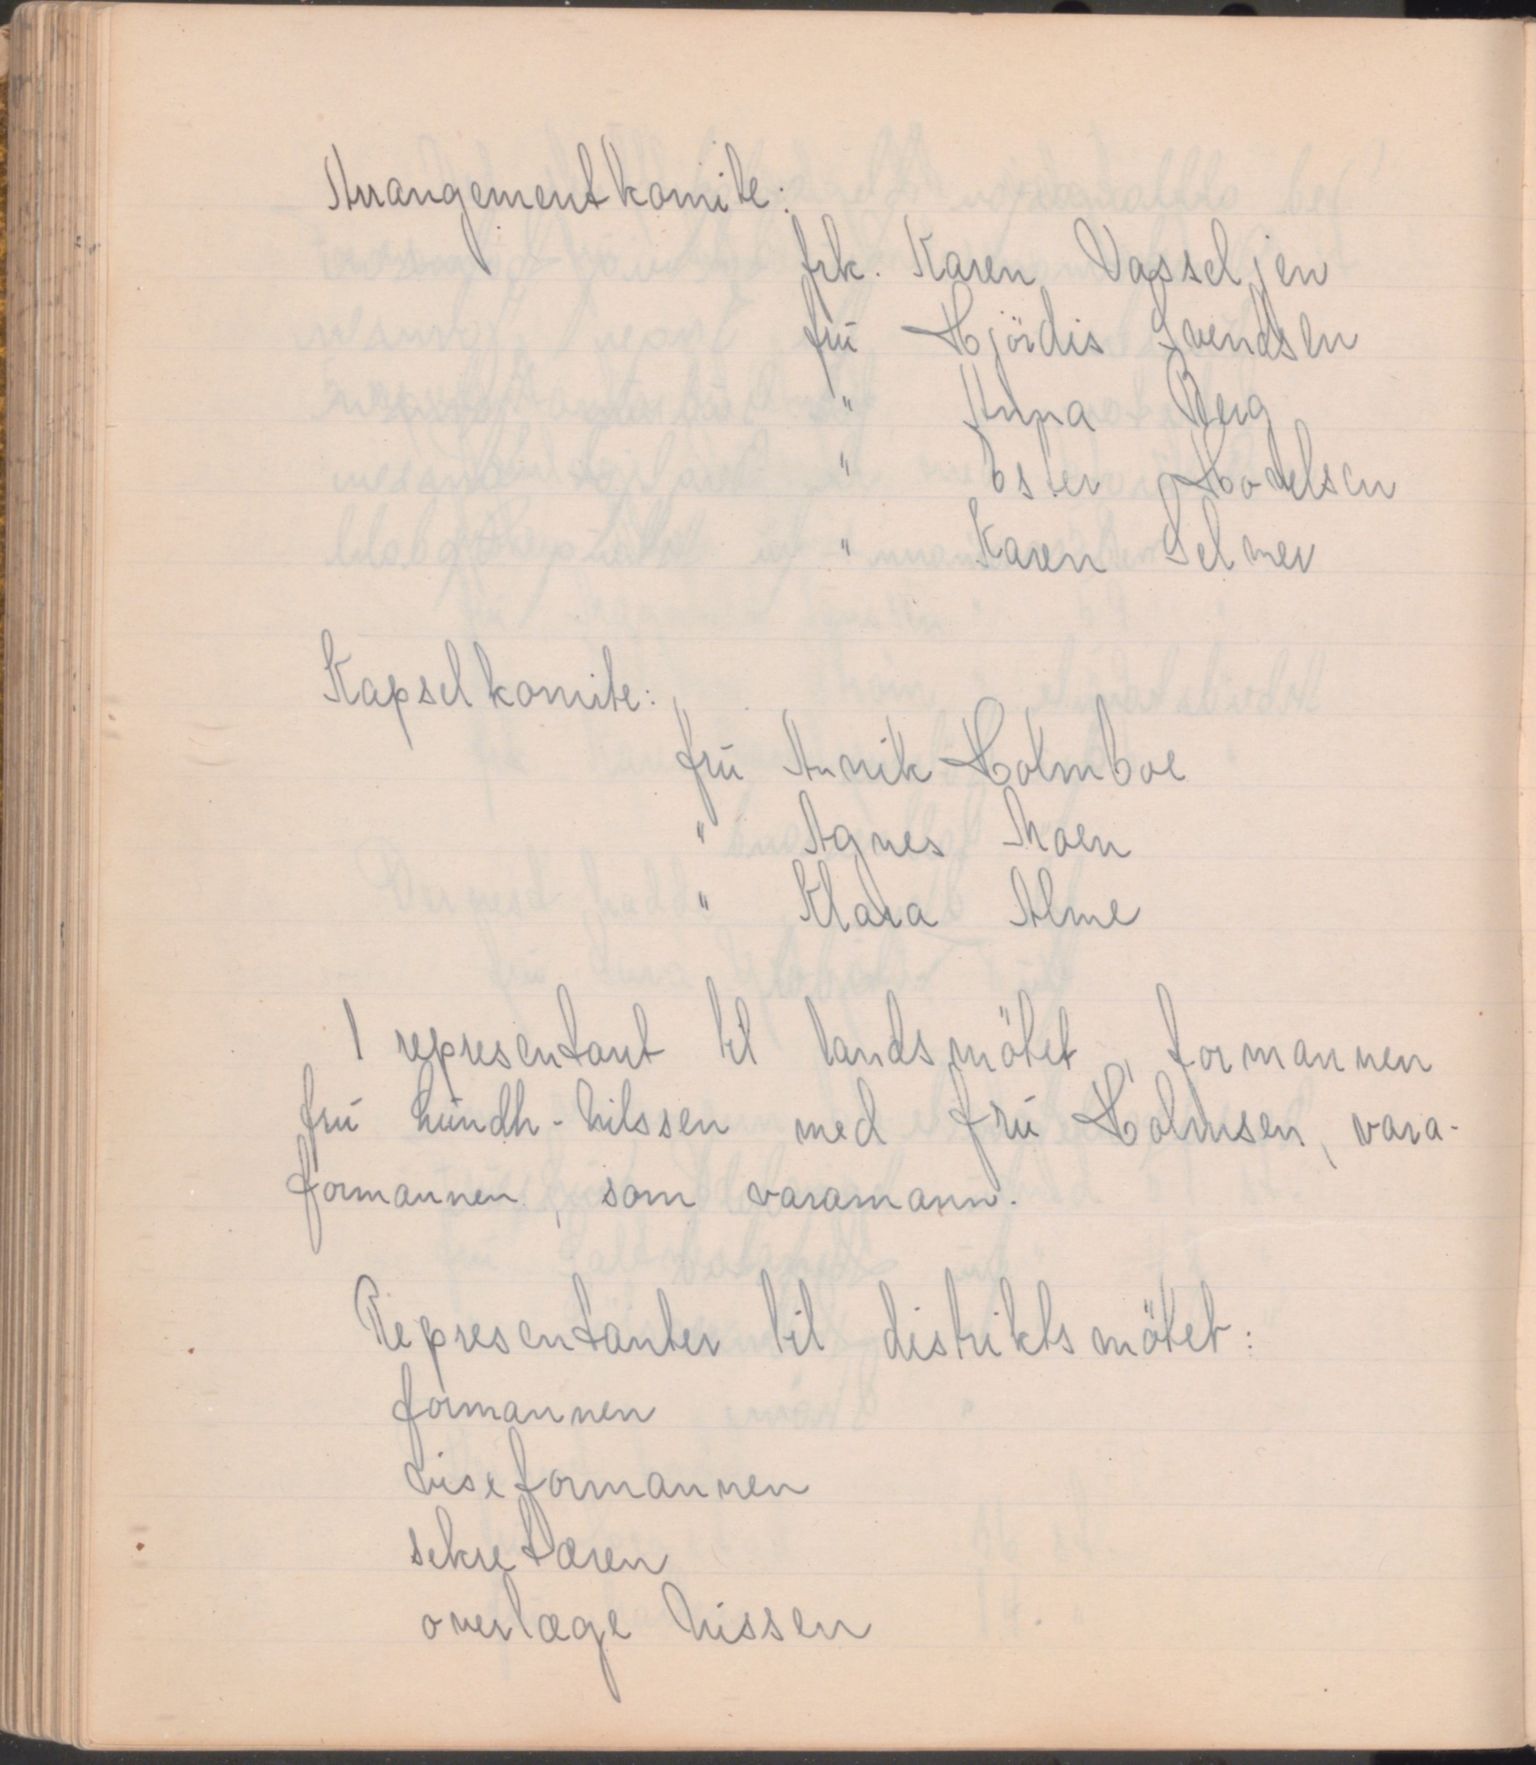 Arrangementkomite:
frk. Karen Vasseljen
frü Hjördis Svendsen
" Anna Berg
" Ester
" Karen Selmer
Kapselkomite:
frü Annik Holmboe
" Agnes Moen
" Klara Alme
1 representant til landsmötet, formannen
frü Lündh-Nilssen med frü Holmsen, vara-
formannen, som varamann.
Representanter til distriktsmötet:
formannen
viseformannen
sekretæren
overlæge Nissen